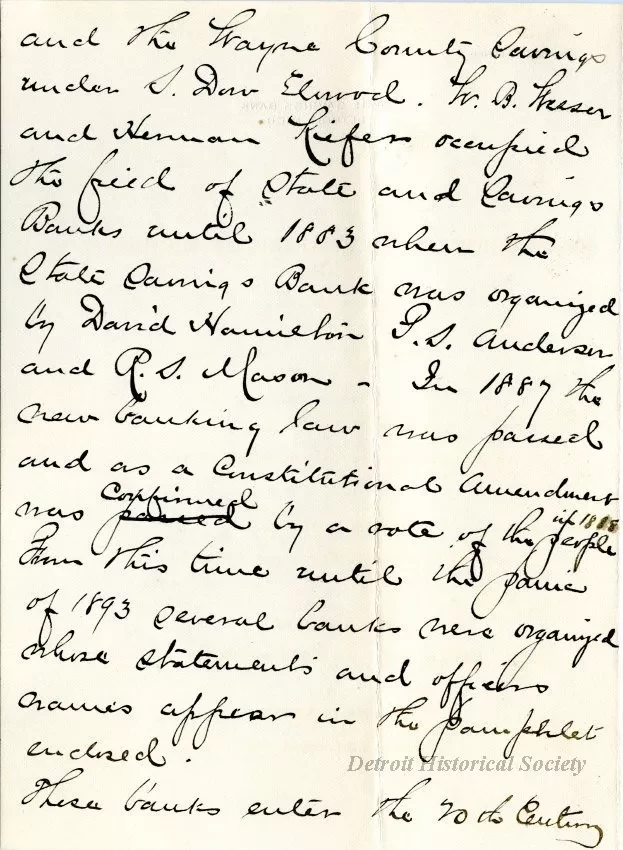 and the Wayne County Savings
under S. Dow Elwood. W. B. Wesson
and Herman Kiefer occupied
the field of State and Savings
Banks until 1883 when the
State Savings Bank was organized
by David Hamilton T. S. Anderson
and R. S. Mason - In 1887 the
new banking law was passed
and as a Constitutional Amendment
was passed confirmed by a vote of the people in 1888
From this time until the panic
of 1893 several banks were organized
whose statements and officers
names appear in the pamphlet
enclosed.
These banks enter the 20th Century
Detroit Historical Society